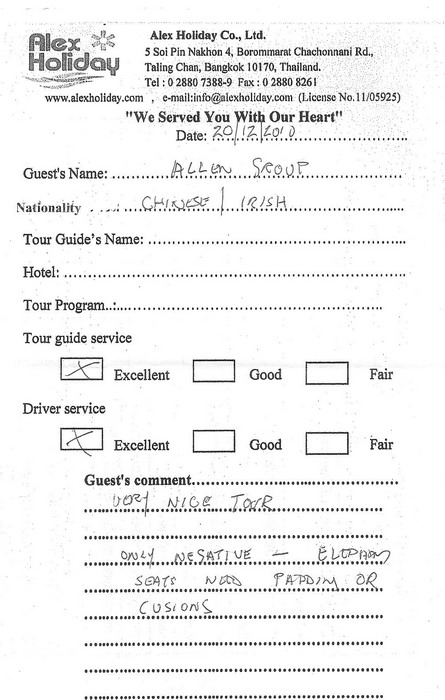 Alex Holiday
Alex Holiday Co., Ltd.
5 Soi Pin Nakhon 4, Borommarat Chachonnani Rd.,
Taling Chan, Bangkok 10170, Thailand.
Tel : 0 2880 7388-9 Fax : 0 2880 8261
www.alexholiday.com , e-mail:info@alexholiday.com (License No.11/05925)
"We Served You With Our Heart"
Date: 20/12/2010
Guest's Name: ALLEN GROUP
Nationality CHINESE / IRISH
Tour Guide's Name:
Hotel:
Tour Program..:
Tour guide service
Excellent Good Fair
Driver service
Excellent Good Fair
Guest's comment
VERY NICE TOUR
ONLY NEGATIVE — ELEPHANT
SEATS NEED PADDING OR
CUSIONS